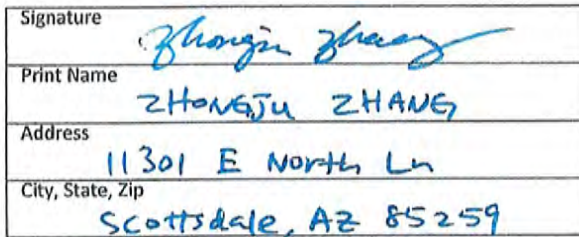 Signature
Zhongju Zhang
Print Name
ZHONGJU ZHANG
Address
11301 E North Ln
City, State, Zip
Scottsdale, AZ 85259